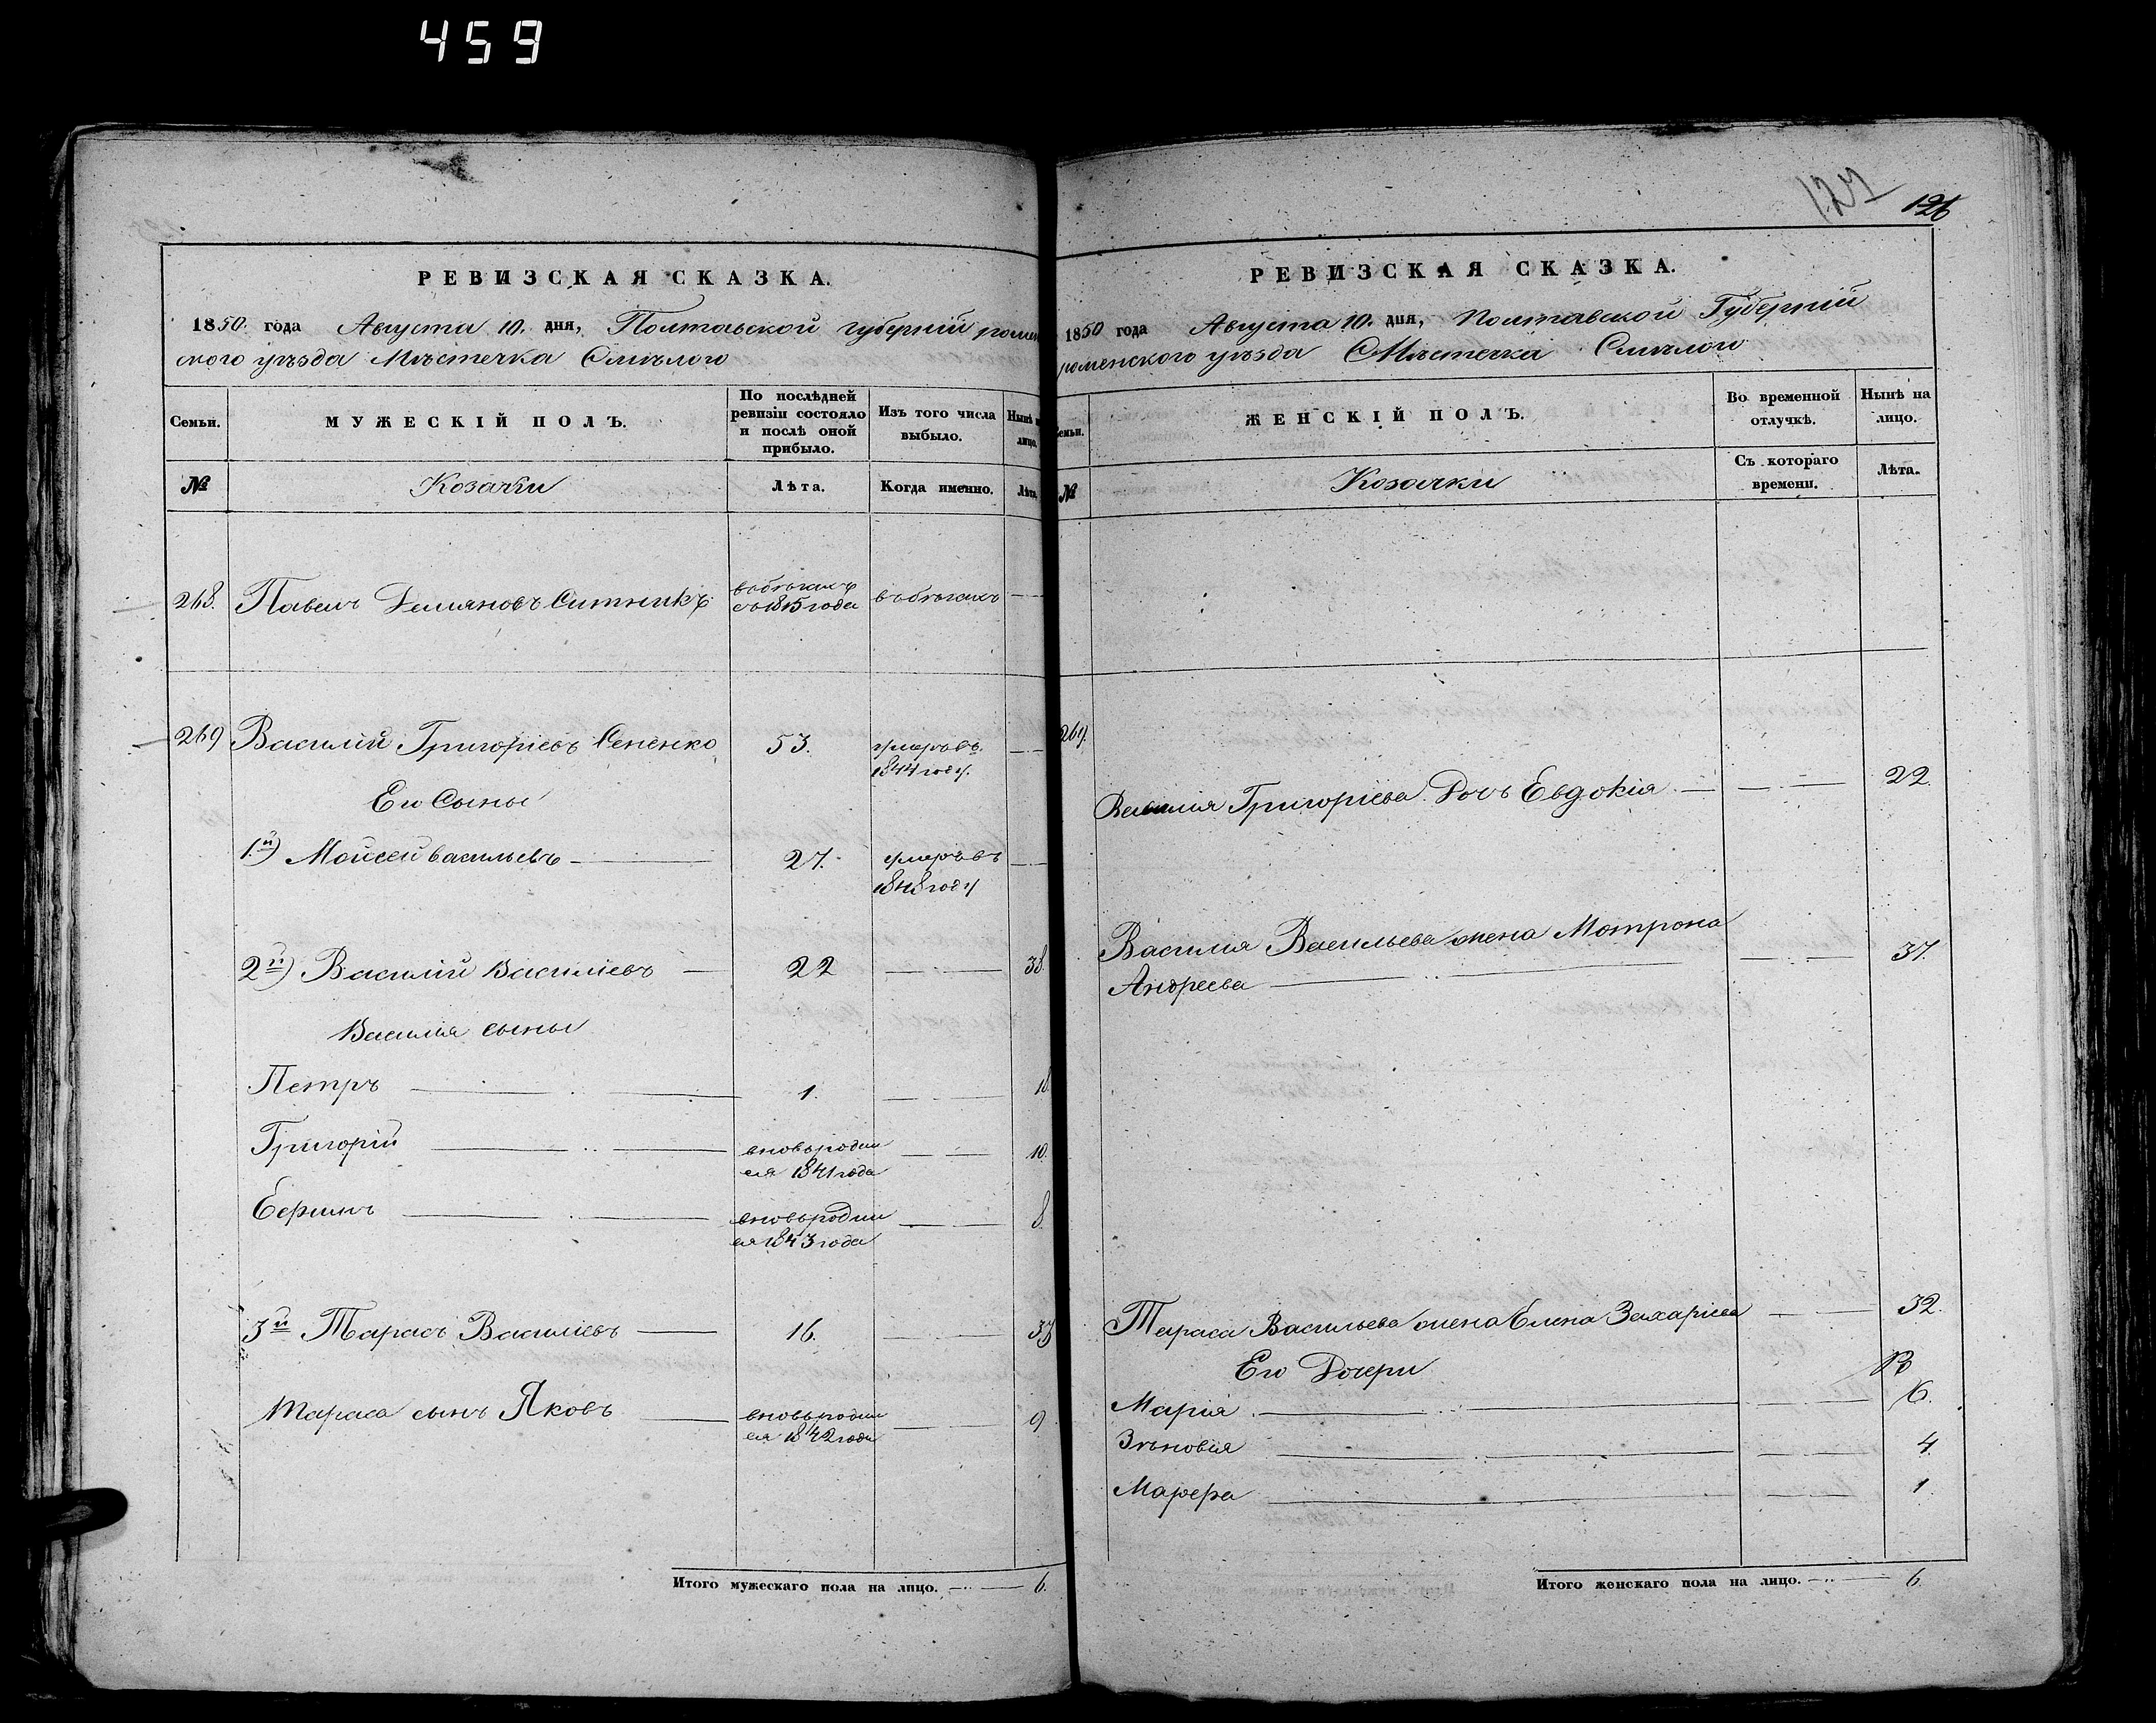 459
РЕВИЗСКАЯ СКАЗКА.
1850. года Августа 10. дня, Полтавской губерній ромен
ского уѣзда Мѣстечка Смѣлого
Семьи.
МУЖЕСКІЙ ПОЛЪ.
По послѣдней
ревизіи состояло
и послѣ оной
прибыло.
Изъ того числа
выбыло.
Нынѣ н
лицо.
№
Козаки
Лѣта.
Когда именно.
Лѣта.
268. Павелъ Демяновъ Ситникъ въ бѣгахъ въ бѣгахъ —
съ 1815 года
269 Василій Григоріевъ Сененко 53. умеръ въ —
1844 году.
Его Сыны
1й) Мойсей васильевъ — 27. умеръ въ —
1848 году
2й) Василій Василіевъ — 22 — 38.
Василія сыны
Петръ — 1. — 18
Григорій — вновь родил — 10.
ся 1841 года
Еермъ — вновь родил — 8.
ся 1843 года
3й Тарасъ Василіевъ — 16. — 33
Тараса сынъ Яковъ — вновь родил — 9
ся 1842 года
Итого мужескаго пола на лицо. — 6.
127
126
РЕВИЗСКАЯ СКАЗКА.
1850 года Августа 10. дня, Полтавской Губерній
роменского уѣзда Мѣстечка Смѣлого
Семьи.
ЖЕНСКІЙ ПОЛЪ.
Во временной
отлучкѣ.
Нынѣ на
лицо.
№
Козачки
Съ котораго
времени.
Лѣта.
269.
Василія Григоріева Дочь Евдокія — 22.
Василия Васильева жена Мотрона
Андреева — 37.
Тараса Васильева жена Елена Захаріева — 32.
Его Дочери
Марія — 6.
Зѣновія — 4.
Марфра — 1
Итого женскаго пола на лицо. — 6.